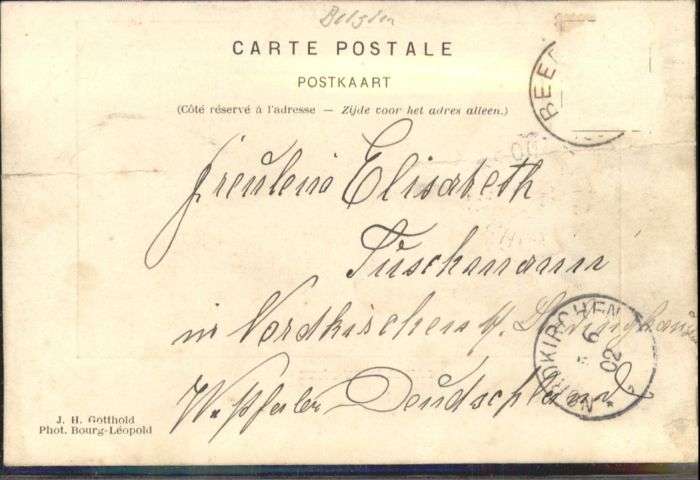 Belgien
CARTE POSTALE
POSTKAART
(Côté réservé à l'adresse — Zijde voor het adres alleen.)
BEE
Freulein Elisabeth
Tüschmann
in Nordkirschen
NORDKIRCHEN
6
02
Wpfalen Deudschland
J. H. Gotthold
Phot. Bourg-Léopold